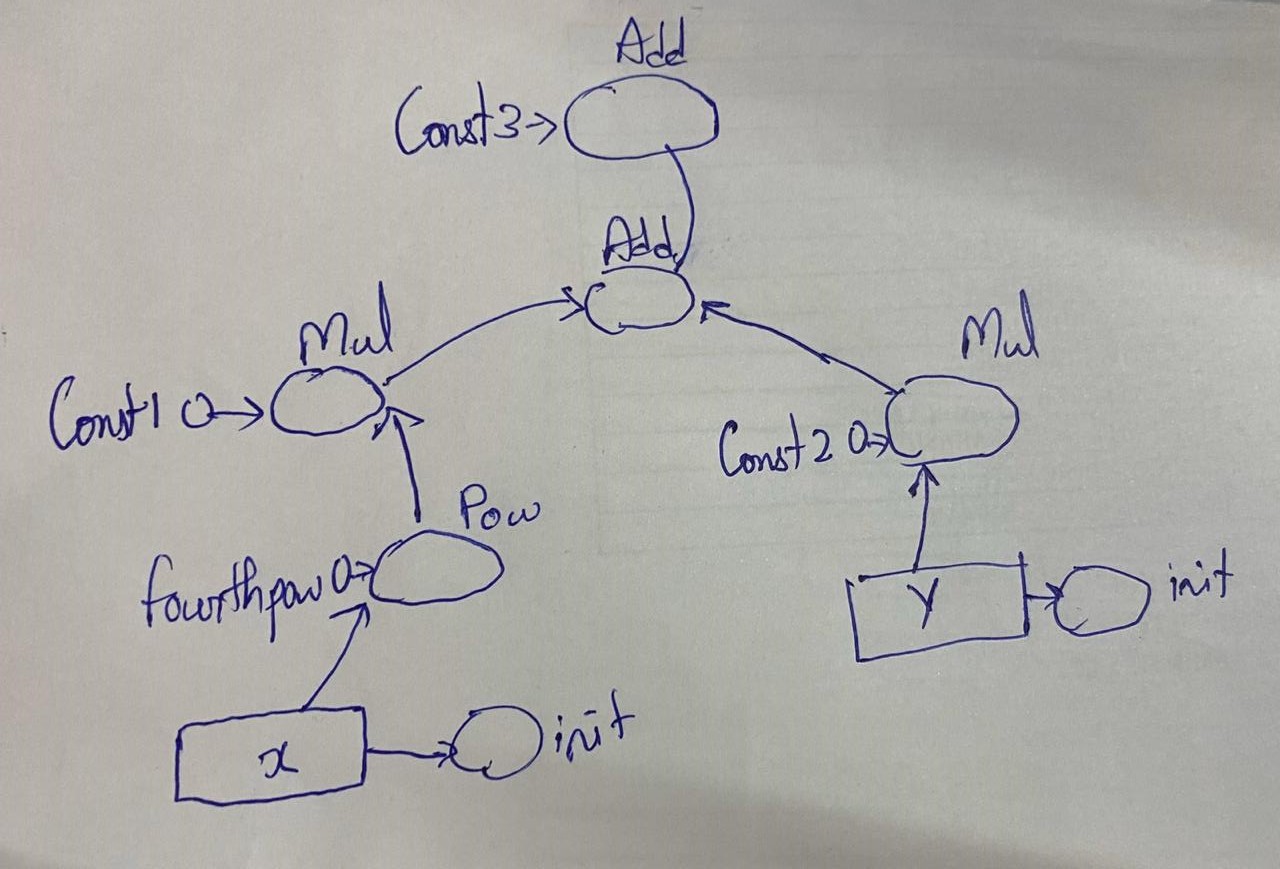 Add
Const3
Add
Mul
Mul
Const1
Const2
Pow
fourthpow
Y
init
x
init